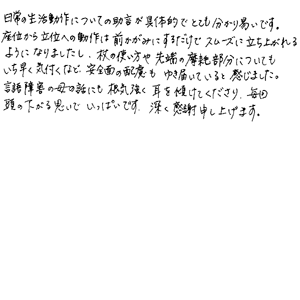 日常の生活動作についての助言が具体的でとても分かり易いです。
座位から立位への動作は前かがみにするだけでスムーズに立ち上がれる
ようになりましたし、杖の使い方や先端の摩耗部分についても
いち早く気付くなど、安全面の配慮もゆき届いていると感じました。
言語障害の母の話にも根気強く耳を傾けてくださり、毎回
頭の下がる思いでいっぱいです。深く感謝申し上げます。